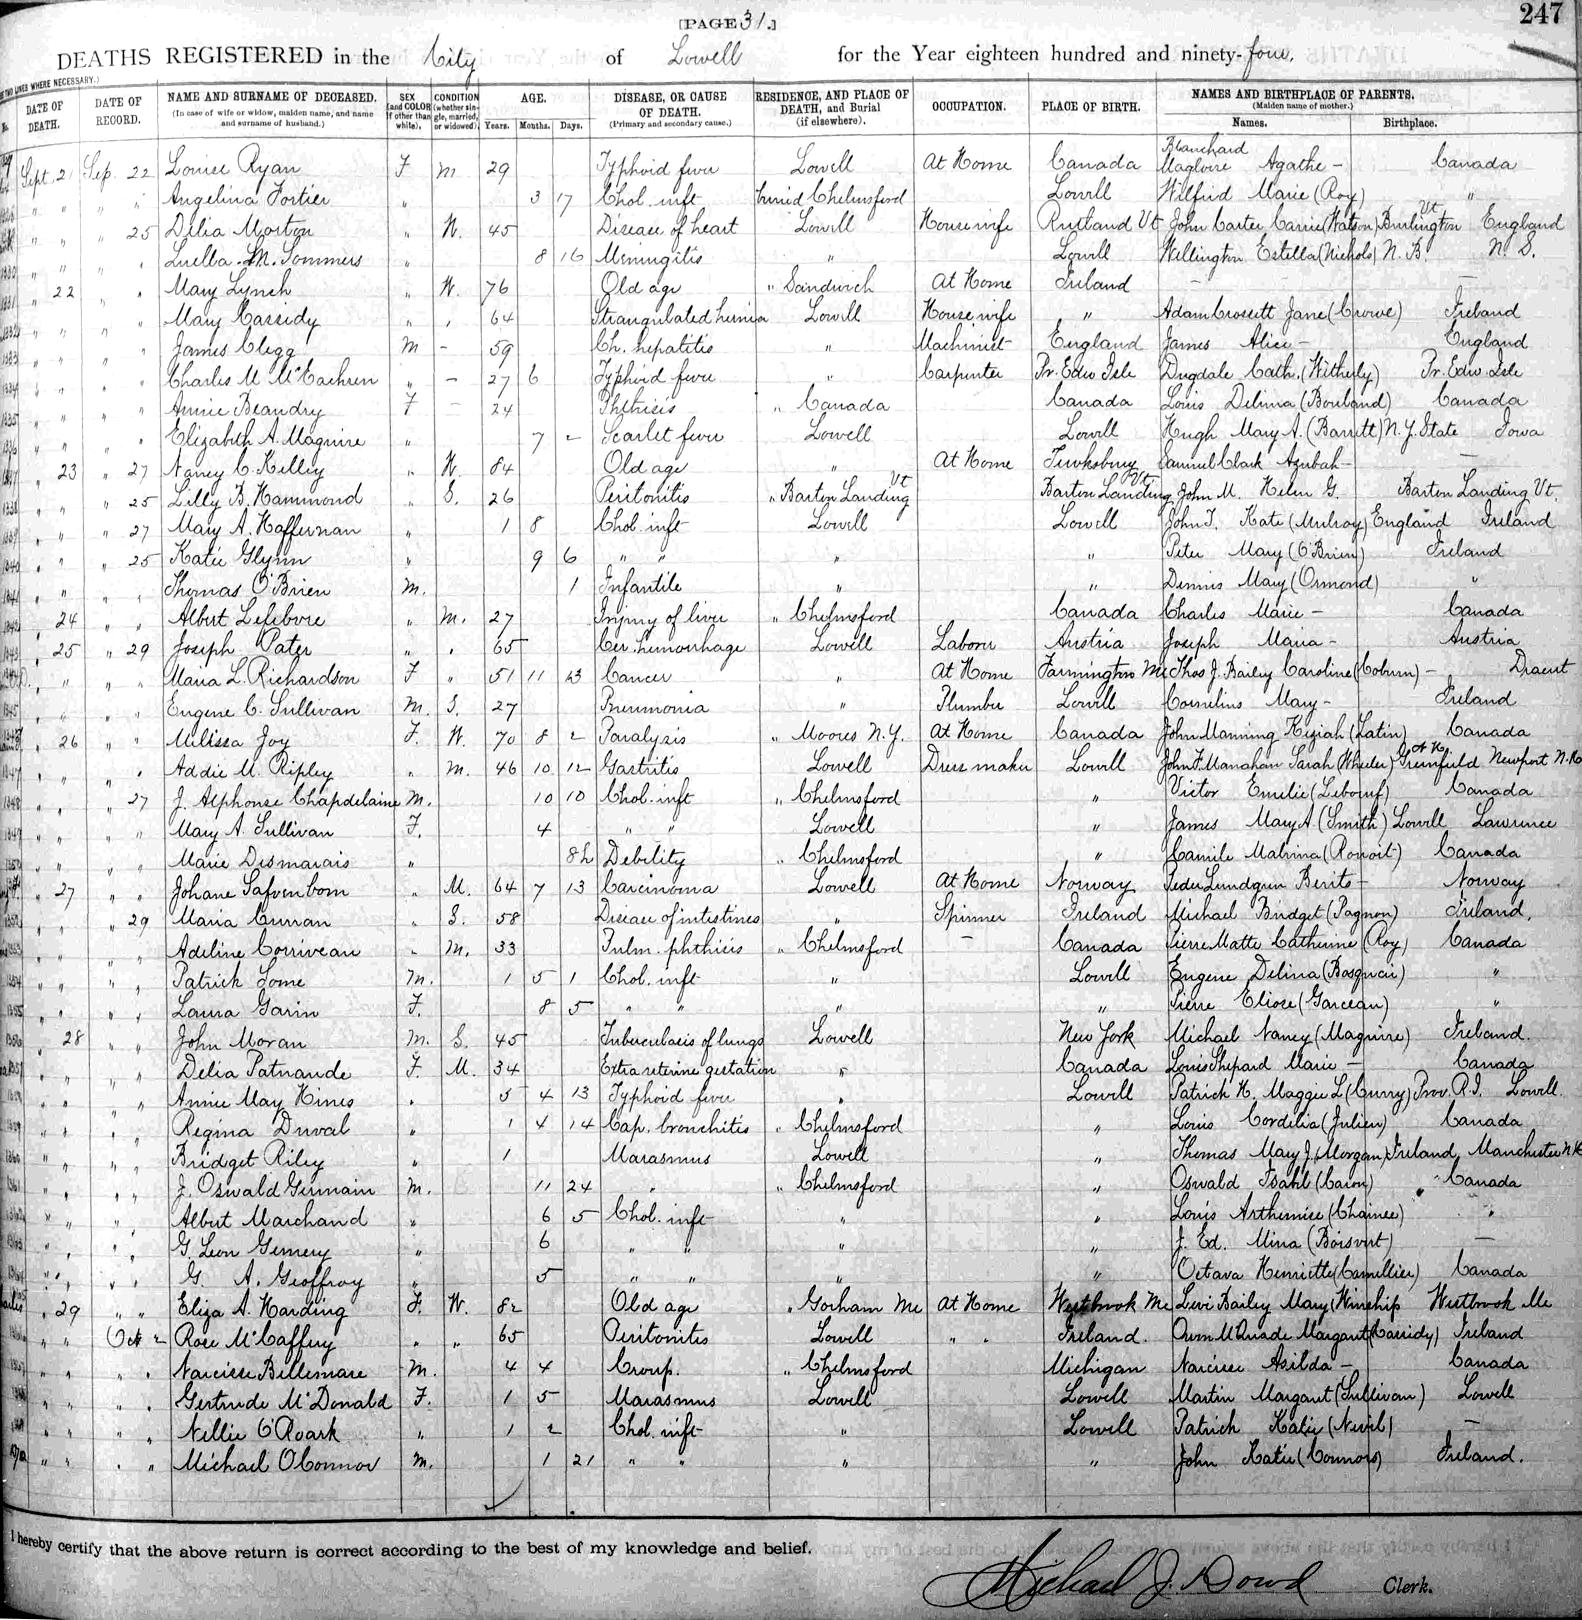 [PAGE 31.]
247
DEATHS REGISTERED in the City of Lowell for the Year eighteen hundred and ninety-four.
TWO LINES WHERE NECESSARY.)
No. DATE OF DEATH. DATE OF RECORD. NAME AND SURNAME OF DECEASED. (In case of wife or widow, maiden name, and name and surname of husband.) SEX (and COLOR if other than white). CONDITION (whether single, married, or widowed). AGE. Years. Months. Days. DISEASE, OR CAUSE OF DEATH. (Primary and secondary cause.) RESIDENCE, AND PLACE OF DEATH, and Burial (if elsewhere). OCCUPATION. PLACE OF BIRTH. NAMES AND BIRTHPLACE OF PARENTS. (Maiden name of mother.) Names. Birthplace.
Sept. 21 Sep. 22 Louise Ryan F m 29 Typhoid fever Lowell At Home Canada Blanchard Magloire Agathe - Canada
" " " " Angelina Fortier " 3 17 Chol. inft buried Chelmsford Lowell Wilfrid Marie (Roy) "
" " " 25 Delia Morton " W. 45 Disease of heart Lowell Housewife Rutland Vt John Carter Carrie (Watson) Burlington Vt England
" " " " Luella M. Sommers " 8 16 Meningitis " Lowell Wellington Estella (Nichols) N. B. N. S.
" 22 " Mary Lynch " W. 76 Old age " Sandwich At Home Ireland - -
" " " " Mary Cassidy " " 64 Strangulated hernia Lowell Housewife " Adam Crossett Jane (Crowe) Ireland
" " " " James Clegg m - 59 Ch. hepatitis " Machinist England James Alice - England
" " " " Charles M McEachren " - 27 6 Typhoid fever " Carpenter Pr. Edw Isle Dugdale Cath. (Witherly) Pr. Edw. Isle
" " " " Annie Beaudry F - 24 Phthisis " Canada Canada Louis Delima (Bouland) Canada
" " " " Elizabeth A. Maguire " 7 2 Scarlet fever Lowell Lowell Hugh Mary A. (Barrett) N. Y. State Iowa
" 23 " 27 Nancy C. Killey " W. 84 Old age " At Home Tewksbury Samuel Clark Azubah - -
" " " 25 Lilly B. Hammond " S. 26 Peritonitis " Barton Landing Vt Barton Landing Vt John M. Helen G. Barton Landing Vt.
" " " 27 Mary A. Haffernan " 1 8 Chol. inft Lowell Lowell John T. Kate (Mulroy) England Ireland
" " " 25 Katie Glynn " 9 6 " " " " Peter Mary (O'Brien) Ireland
" " " " Thomas O'Brien M. 1 Infantile " " Dennis Mary (Ormond) "
" 24 " " Albert Lefebvre " m. 27 Injury of liver " Chelmsford Canada Charles Marie - Canada
" 25 " 29 Joseph Pater " " 65 Cer. hemorrhage Lowell Laborer Austria Joseph Maria - Austria
" " " " Maria L. Richardson F " 51 11 23 Cancer " At Home Farmington Me Thos J. Bailey Caroline (Coburn) - Dracut
" " " " Eugene C. Sullivan M. S. 27 Pneumonia " Plumber Lowell Cornelius Mary - Ireland
" 26 " " Melissa Joy F. W. 70 8 2 Paralysis " Moores N.Y. At Home Canada John Manning Keziah (Latin) Canada
" " " " Addie M. Ripley " M. 46 10 12 Gastritis Lowell Dressmaker Lowell John F. Manahan Sarah (Wheeler) Greenfield N.H. Newport N.H.
" " " 27 J. Alphonse Chapdelaine M. 10 10 Chol. inft " Chelmsford " Victor Emilie (Lebœuf) Canada
" " " " Mary A. Sullivan F. 4 " " Lowell " James Mary A (Smith) Lowell Lawrence
" " " " Marie Desmarais " 8h Debility " Chelmsford " Camile Malvina (Benoit) Canada
" 27 " " Johane Safvenbom " M. 64 7 13 Carcinoma Lowell At Home Norway Peder Lundgren Berito - Norway
" " " 29 Maria Curran " S. 58 Disease of intestines " Spinner Ireland Michael Bridget (Pagnon) Ireland.
" " " " Adeline Corriveau " M. 33 Pulm. phthisis " Chelmsford - Canada Pierre Matte Catherine (Roy) Canada
" " " " Patrick Lome M. 1 5 1 Chol. inft " Lowell Eugene Delina "
" " " " Laura Garin F. 8 5 " " " " Pierre Eliose (Garceau) "
" 28 " " John Moran M. S. 45 Tuberculosis of lungs Lowell New York Michael Nancy (Maguire) Ireland.
" " " " Delia Patnaude F. M. 34 Extra uterine gestation " Canada Louis Shepard Marie - Canada
" " " " Annie May Hines " 5 4 13 Typhoid fever " Lowell Patrick H. Maggie L (Curry) Prov. R.I. Lowell
" " " " Regina Duval " 1 4 14 Cap. bronchitis " Chelmsford " Louis Cordelia (Julien) Canada
" " " " Bridget Riley " 1 Marasmus Lowell " Thomas Mary J. (Morgan) Ireland Manchester N.H
" " " " J. Oswald Germain M. 11 24 " " Chelmsford " Oswald Isabl (Caron) Canada
" " " " Albert Marchand " 6 5 Chol. inft " " Louis Arthemise "
" " " " G. Leon Gemery " 6 " " " " J. Ed. Mina (Boisvert) -
" " " " G. A. Geoffroy 5 " " " " Octava Henriette Canada
" 29 " " Eliza A. Harding F. W. 82 Old age " Gorham Me At Home Westbrook Me Levi Bailey Mary (Winship Westbrook Me
" " Oct 2 Rose McCaffery " " 65 Peritonitis Lowell " " Ireland. Owen McQuade Margaret (Cassidy) Ireland
" " " " Narcisse Billemare M. 4 4 Croup. " Chelmsford Michigan Narcisse Asilda - Canada
" " " " Gertrude McDonald F. 1 5 Marasmus Lowell Lowell Martin Margaret (Sullivan) Lowell
" " " " Nellie O'Roark " 1 2 Chol. inft " Lowell Patrick Katie (Nevil) -
" " " " Michael O'Connor M. 1 21 " " " " John Katie (Connors) Ireland.
I hereby certify that the above return is correct according to the best of my knowledge and belief.
Michael J. Dowd Clerk.